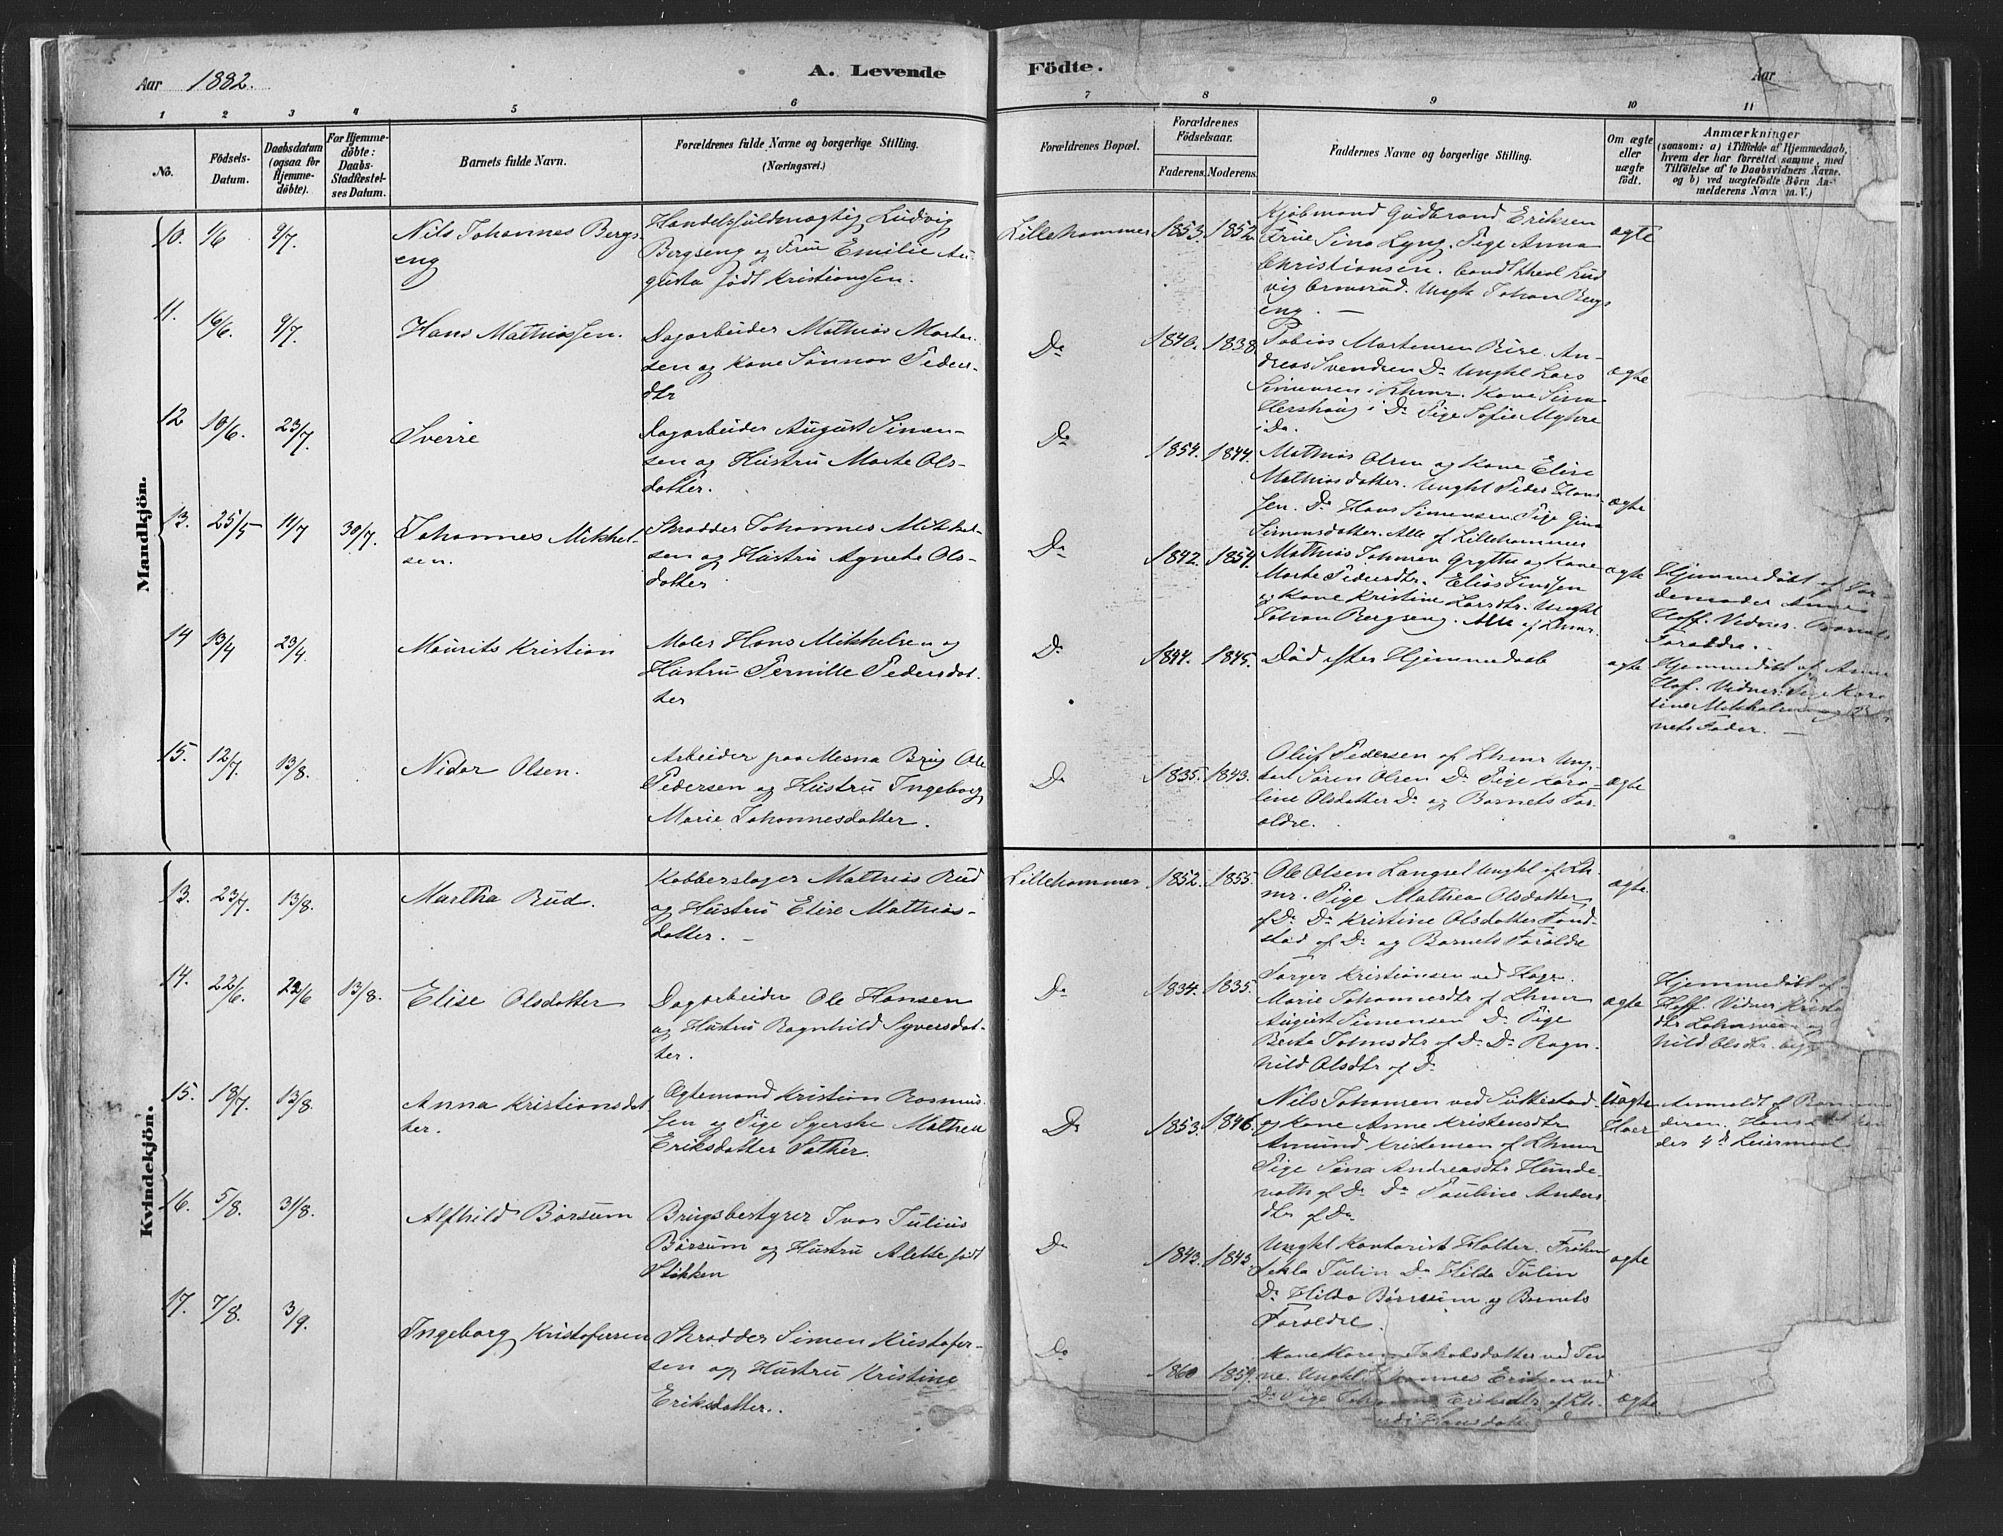 Aar 1882.
A. Levende
Födte.
Aar
1 2 3 4 5 6
7 8 9 10 11
No.
Födsels-
Datum.
Daabsdatum
(ogsaa for
Hjemme-
döbte).
For Hjemme-
döbte:
Daabs-
Stadfæstel-
ses Datum.
Barnets fulde Navn.
Forældrenes fulde Navne og borgerlige Stilling.
(Næringsvei.)
Forældrenes Bopæl.
Forældrenes
Födselsaar.
Faderens. Moderens.
Faddernes Navne og borgerlige Stilling.
Om ægte
eller
uægte
født.
Anmærkninger
(saasom: a) i Tilfælde af Hjemmedaab,
hvem der har forrettet samme, med
Tilföielse af to Daabsvidners Navne.
og b) ved uægtefödte Börn An-
melderens Navn m. V.)
Mandkjön.
10. 1/6 9/7 Nils Johannes Bergs-
eng
Handelsfuldmægtig Ludvig
Bergseng og Frue Emilie Au-
gusta født Kristiansen.
Lillehammer 1853. 1852.
Kjøbmand Gudbrand Eriksen
Frue Sina Lyng. Pige Anna
Christiansen. Cand theol Lud
vig Ormerud. Ungk Johan Bergs
eng. —
ægte
11. 16/6 9/7 Hans Mathiassen.
Dagarbeider Mathias Marten-
sen og Kone Sønnov Peders-
dtr
Do 1840. 1838
Tobias Martensen Rise. An-
dreas Svendsen Do Ungkl Lars
Simensen i Lhmr. Kone Sina
Hershaug i Do Pige Sofie Myhre
i Do.
ægte
12 19/6. 23/7. Sverre
Dagarbeider August Simen-
sen og Hustru Marte Ols-
datter.
Do 1854. 1844.
Mathias Olsen og Kone Elise
Mathiasdatter. Ungkl Peder Hans
sen. Do Hans Simensen Pige Gina
Simensdatter. Alle af Lillehammer
ægte
13. 25/5 11/7 30/7. Johannes Mikkel-
sen.
Skrædder Johannes Mikkel-
sen og Hustru Agnethe Ols-
datter
Do 1842. 1854.
Mathias Johnsen Grytte og Kone
Marte Pedersdtr. Elias Jenssen
og Kone Kristine Larsdtr. Ungkl
Johan Bergseng. Alle af Lhmr.
ægte
Hjemmedøbt af Jor-
demoder Anne
Hoff. Vidner. Barnets
Forældre.
14 13/4 23/4. Maurits Kristian
Maler Hans Mikkelsen og
Hustru Pernille Pedersdat-
ter
Do 1844. 1845.
Død efter Hjemmedaab
ægte
Hjemmedøbt af Anne
Hof. Vidner: Pige Karo
line Mikkelsen og Bar
nets Fader. —
15. 12/7. 13/8. Nidar Olsen.
Arbeider paa Mesna Brug Ole
Pedersen og Hustru Ingeborg
Marie Johannesdatter.
Do 1835. 1843.
Oluf Pedersen af Lhmr Ung-
karl Søren Olsen Do Pige Karo-
line Olsdatter Do og Barnets For-
ældre.
ægte
Kvindekjön.
13. 23/7. 13/8. Martha Rud.
Kobberslager Mathias Rud
og Hustru Elise Mathias-
datter. —
Lillehammer 1852. 1855.
Ole Olsen Langsæt Ungkl af Lh-
mr. Pige Mathea Olsdatter
af Do Do Kristine Olsdatter Fond-
stad af Do og Barnets Forældre
ægte
14. 22/6. 22/6 13/8. Elise Olsdatter
Dagarbeider Ole Hansen
og Hustru Ragnhild Syversdat-
ter.
Do 1834. 1835.
Torger Kristiansen ved Hage.
Marie Johannesdtr af Lhmr
August Simensen Do Pige
Berta Johnsdtr af Do Do Ragn-
hild Olsdtr af Do
ægte
Hjemmedøbt af
Hoff. Vidner Krist
dtr og
hild Olsdtr.
15. 18/7. 13/8. Anna Kristiansdat
ter.
Ægtemand Kristian Rasmus-
sen og Pige Syerske Mathea
Eriksdatter Sæther.
Do 1853. 1846.
Nils Johansen ved Suttestad-
og Kone Anne Kristensdtr
Amund Kristensen af Lhmr
Pige Sina Andreasdtr Hunde-
af Do Do Pauline Anders
dtr af Do
Uægte
Hoer
Anmeldt af
deren. Hans
der 4de Leiermaal
16. 5/8. 31/8. Alfhild Børsum
Brugsbestyrer Ivar Julius
Børsum og Hustru Alette født
Stikken
Do 1843. 1842
Ungkl Kontorist Holter. Frøken
Tekla Tulin Do Hilda Tulin
Do Hilda Børrsum og Barnets
Forældre.
ægte
17. 7/8. 3/9. Ingeborg Kristofersen
Skrædder Simen Kristofer-
sen og Hustru Kristine
Eriksdatter.
Do 1860 1859.
Kone Karen Jakobsdatter ved
Ungkl. Johannes Eriksen ved
Do Pige Johanne Eriksdtr af Lh-
Hansdatter
ægte